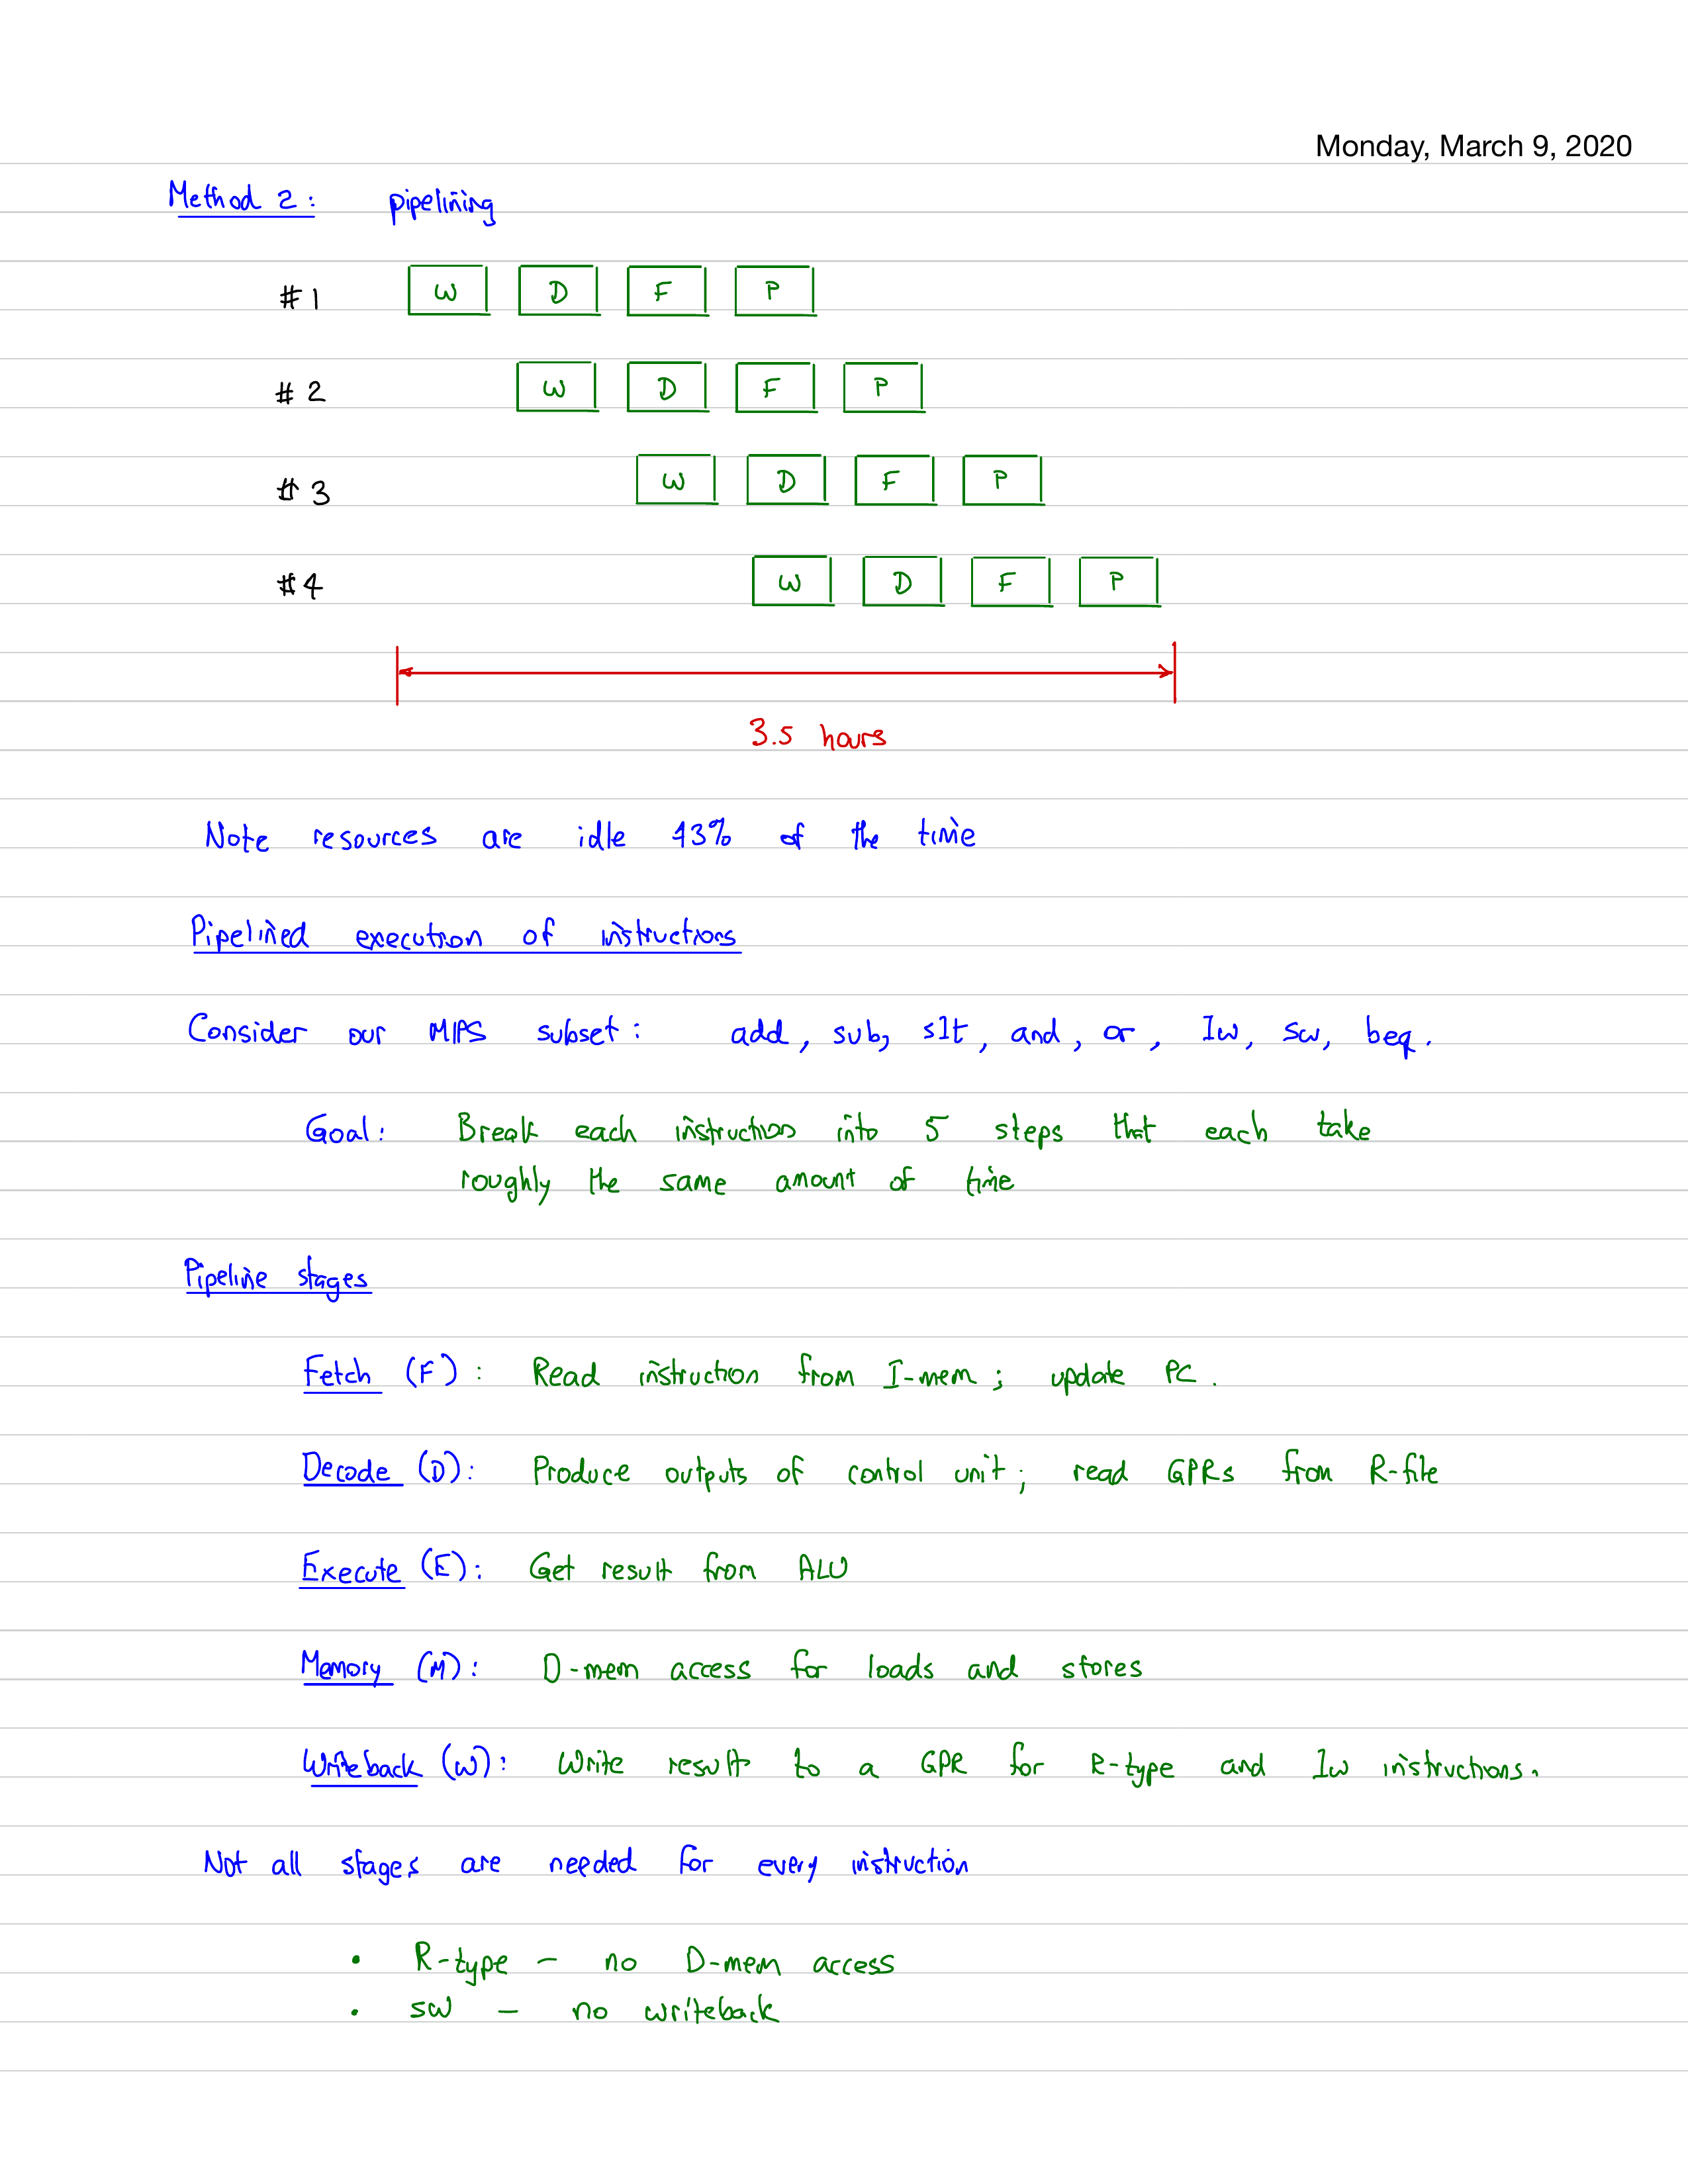 Monday, March 9, 2020
Method 2: pipelining
#1 W D F P
#2 W D F P
#3 W D F P
#4 W D F P
3.5 hours
Note resources are idle 43% of the time
Pipelined execution of instructions
Consider our MIPS subset: add, sub, slt, and, or, lw, sw, beq.
Goal: Break each instruction into 5 steps that each take
roughly the same amount of time
Pipeline stages
Fetch (F): Read instruction from I-mem; update PC.
Decode (D): Produce outputs of control unit; read GPRs from R-file
Execute (E): Get result from ALU
Memory (M): D-mem access for loads and stores
Writeback (W): Write result to a GPR for R-type and lw instructions.
Not all stages are needed for every instruction
• R-type – no D-mem access
• sw – no writeback